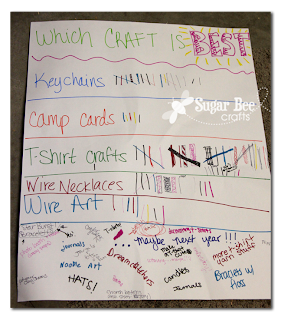 Which CRAFT IS BEST
Keychains
Sugar Bee
crafts
Camp Cards
T-Shirt crafts
Wire Necklaces
Wire Art
Maybe next year!!!
Journals
Noodle Art
HATS!
Dreamcatchers
candles
Journals
more t-shirt
yarn stuff
Bracelets w/
floss